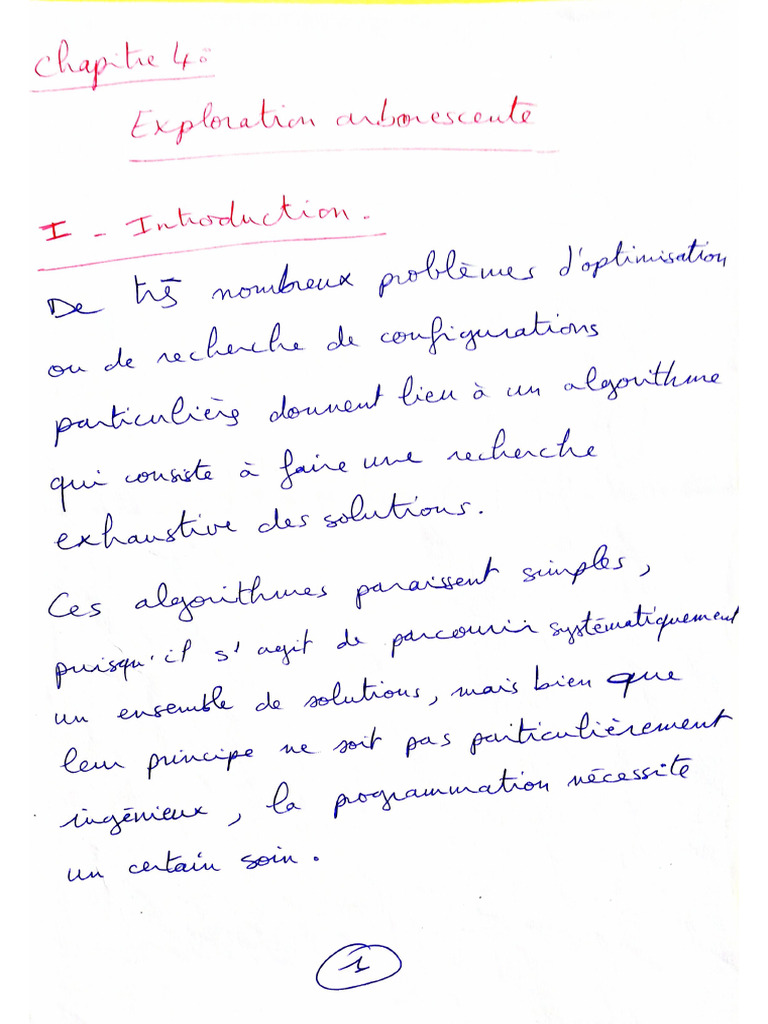 Chapitre 4:
Exploration arborescente
I - Introduction.
De très nombreux problèmes d'optimisation
ou de recherche de configurations
particulières donnent lieu à un algorithme
qui consiste à faire une recherche
exhaustive des solutions.
Ces algorithmes paraissent simples,
puisqu'il s'agit de parcourir systématiquement
un ensemble de solutions, mais bien que
leur principe ne soit pas particulièrement
ingénieux, la programmation nécessite
un certain soin.
1